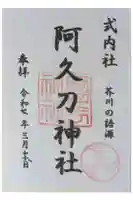 式内社
芥川の語源
阿久刀神社
奉拝
令和七年三月十六日